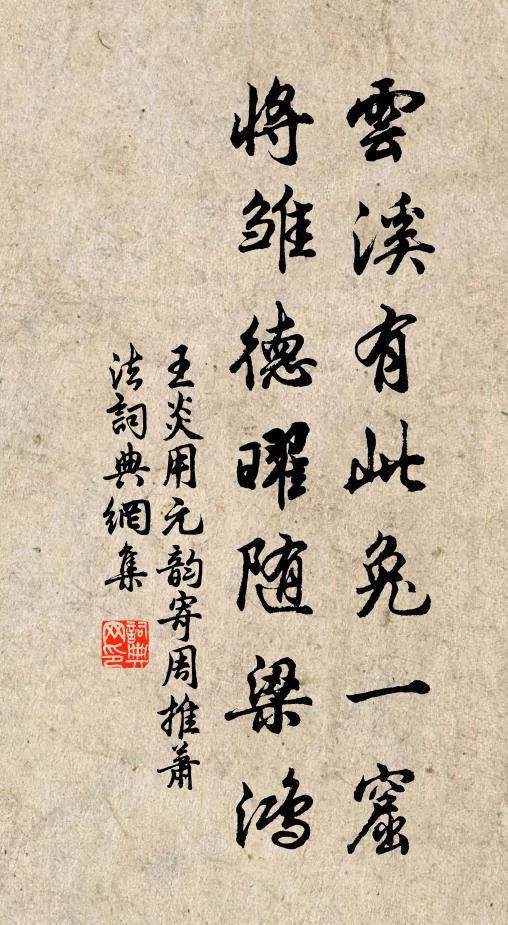 雲溪有此兔一窟
將雛德曜随梁鴻
王炎用元韵寄周推萧
法詞典網集
詞典网印